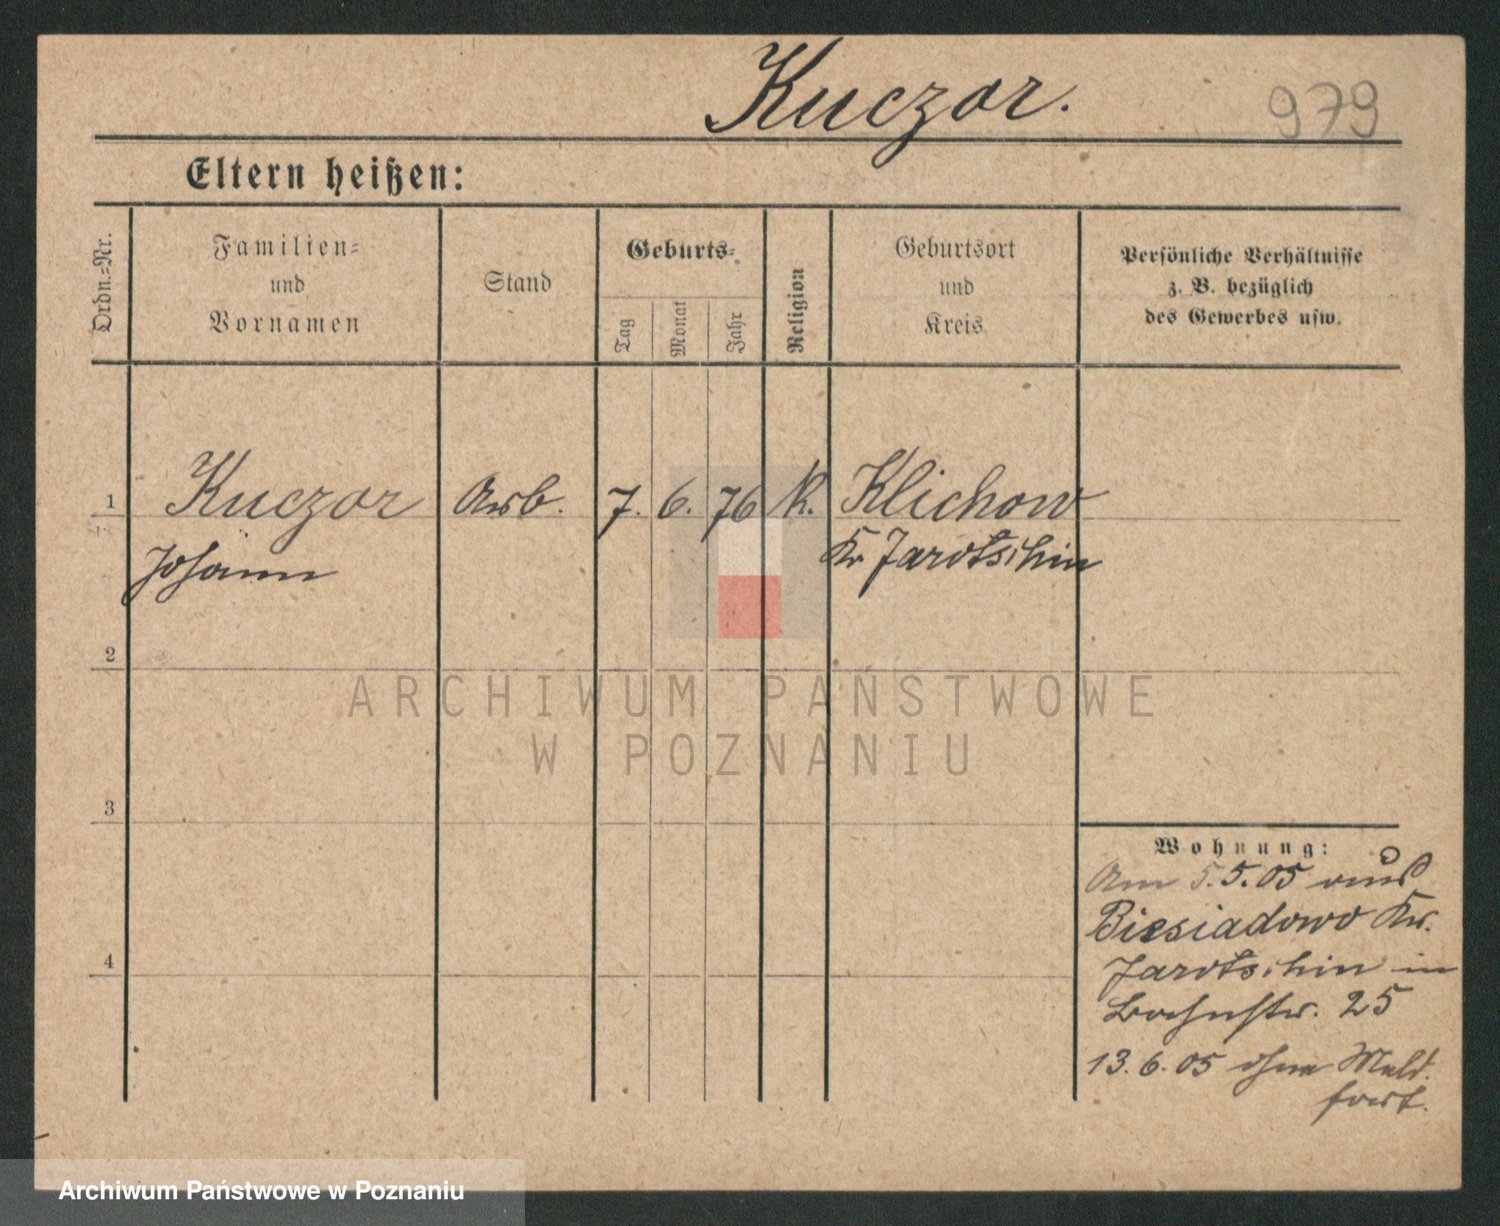 Kuczor.
979
Eltern heißen:
Ordn.-Nr.
Familien-
und
Vornamen
Stand
Geburts-
Tag
Monat
Jahr
Religion
Geburtsort
und
Kreis
Persönliche Verhältnisse
z. B. bezüglich
des Gewerbes usw.
1
Kuczor Arb. 7. 6. 76 K. Klichow
Johann Kr Jarotschin
2
ARCHIWUM PAŃSTWOWE
W POZNANIU
3
Wohnung:
Am 5.5.05 aus
Biesiadowo Kr.
4
Jarotschin in
Bahnstr. 25
13.6.05 ohne Meld.
fort.
Archiwum Państwowe w Poznaniu